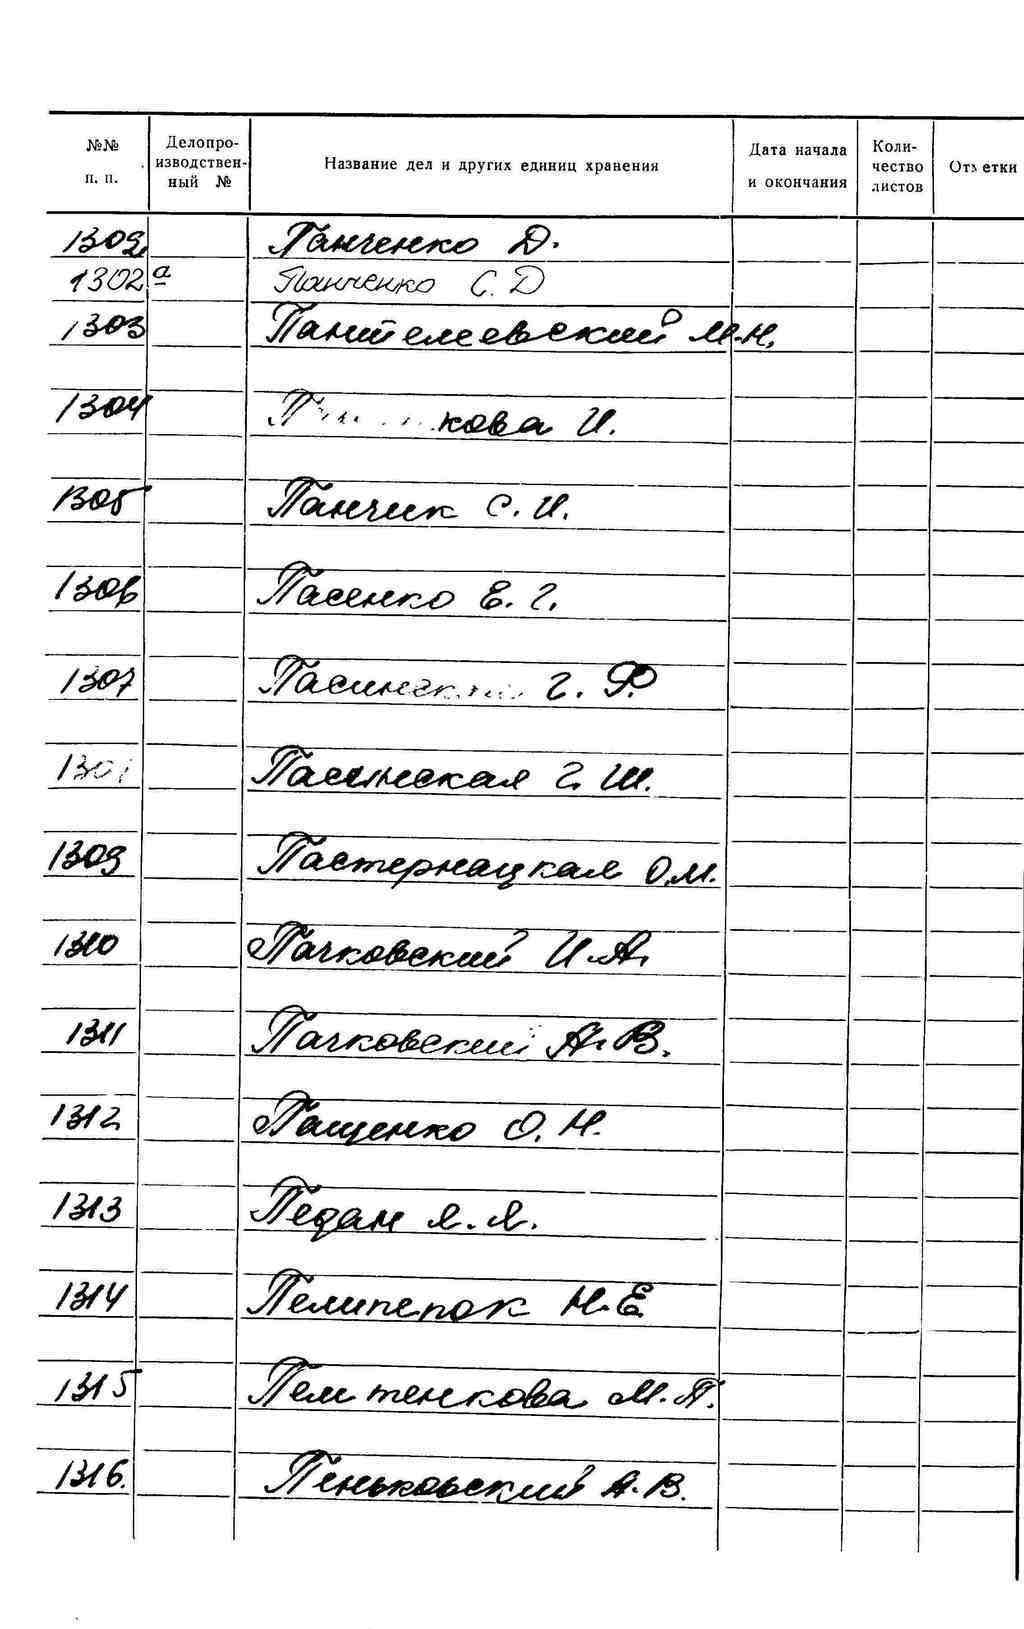 №№ п. п. Делопроизводственный № Название дел и других единиц хранения Дата начала и окончания Количество листов Отметки
1302 Панченко Д.
1302 а Панченко С. Д
1303 Пантелеевский М.Н.
1304 И.
1305 Панчик С. И.
1306 Пасенко Е. Г.
1307 Г. Ф.
Пасинская Г. Ш.
1309 Пастернацкая О.М.
1310 Пачковский И.А.
1311 Пачковский А.В.
1312 Пащенко О. Н.
1313 Педан Я. Я.
1314 Пелипепок Н.Е.
1315 М.П.
1316. Пеньковский А.В.